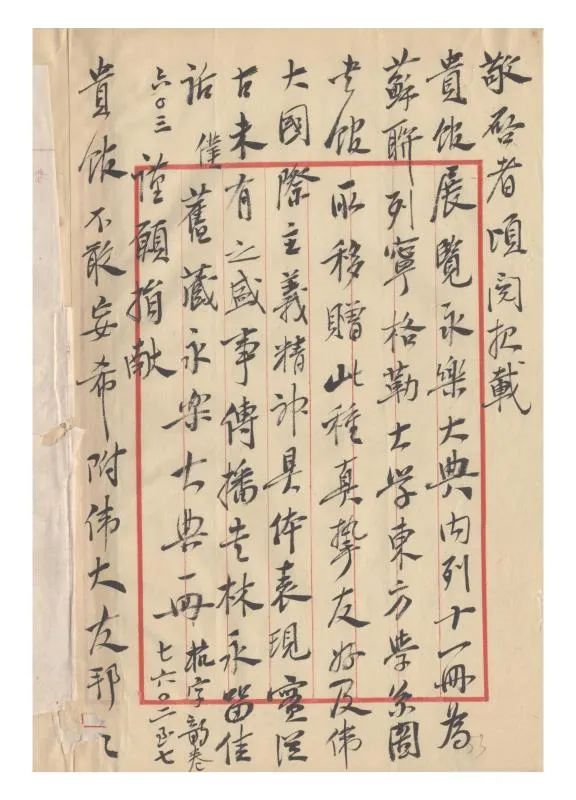 敬启者頃閱报載
貴館展覽永樂大典内列十一冊為
蘇聯列寧格勒大学東方學系圖
书館所移贈此種真摯友好及偉
大國際主義精神具体表現實從
古未有之盛事傳播书林永留佳
話 僕舊藏永樂大典一冊杭字韵卷七六〇二至七
六〇三 謹願捐献
貴館不敢妄希附偉大友邦之
33